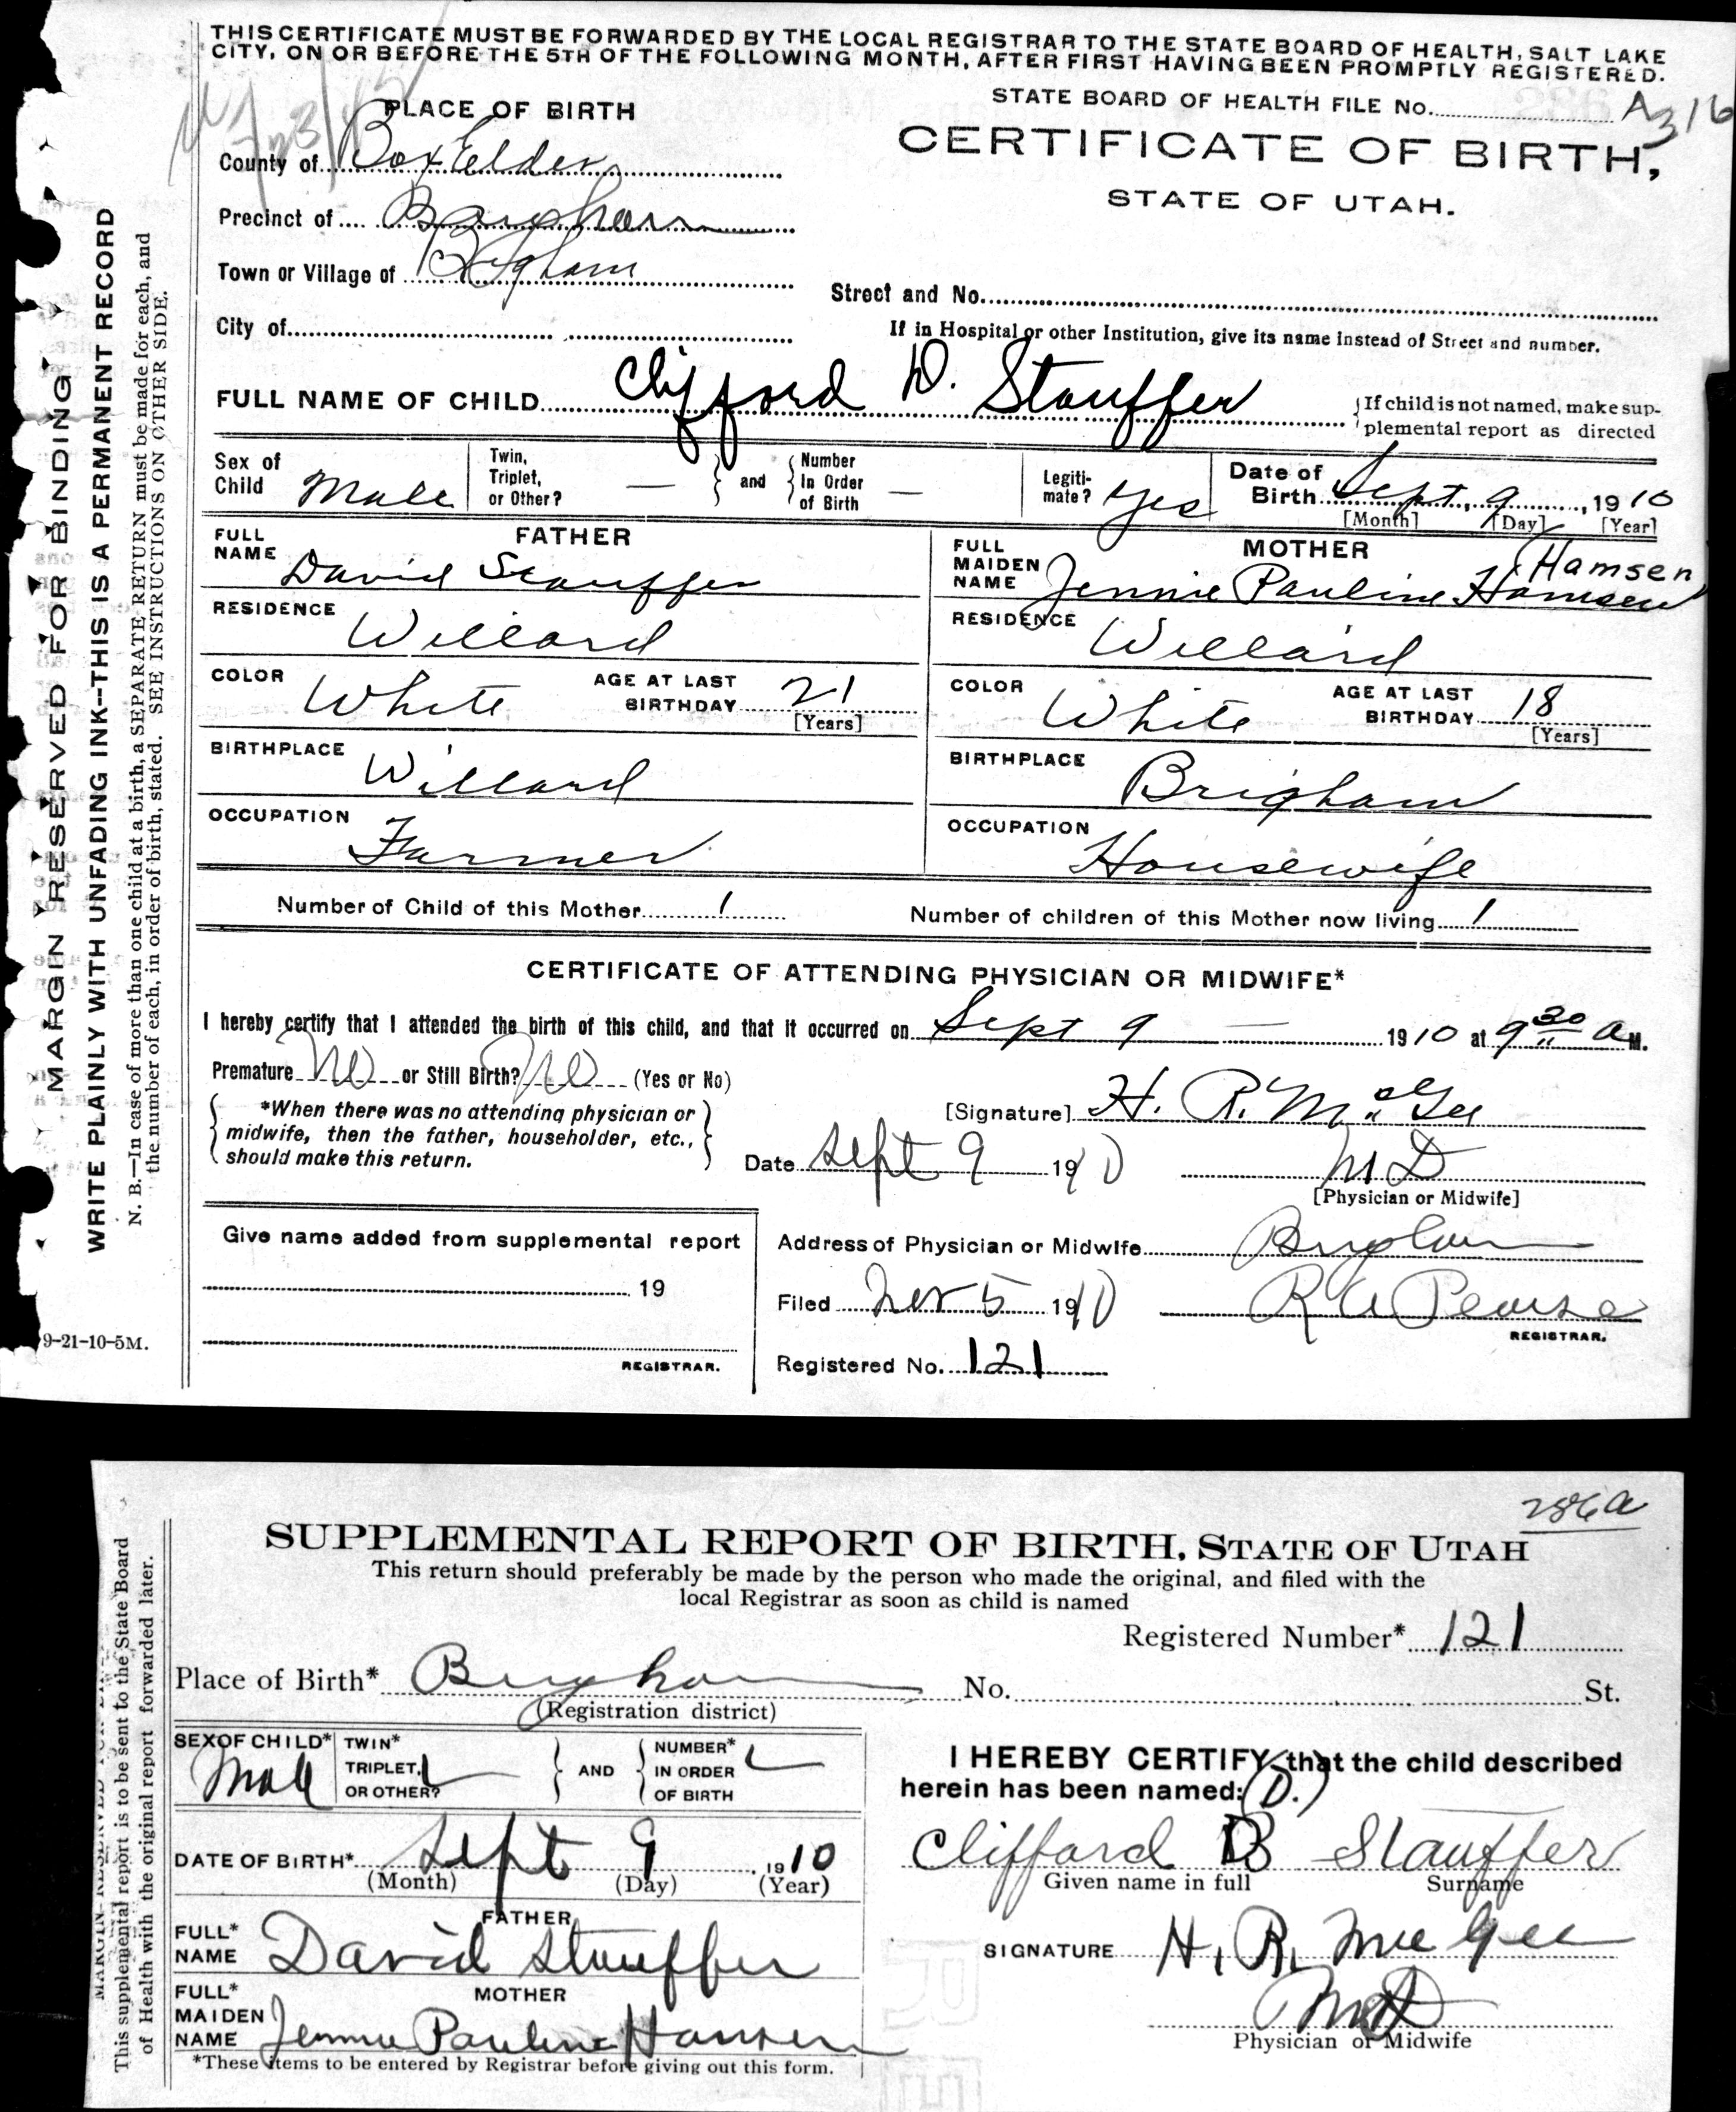 THIS CERTIFICATE MUST BE FORWARDED BY THE LOCAL REGISTRAR TO THE STATE BOARD OF HEALTH, SALT LAKE
CITY, ON OR BEFORE THE 5TH OF THE FOLLOWING MONTH, AFTER FIRST HAVING BEEN PROMPTLY REGISTERED.
STATE BOARD OF HEALTH FILE No. A 316
PLACE OF BIRTH
CERTIFICATE OF BIRTH,
STATE OF UTAH.
County of Box Elder
Precinct of Brigham
Town or Village of Brigham
Street and No.
City of
If in Hospital or other Institution, give its name instead of Street and number.
FULL NAME OF CHILD Clifford D. Stauffer
If child is not named, make sup-
plemental report as directed
Sex of Child Male
Twin, Triplet, or Other? —
and
Number In Order of Birth —
Legiti-mate? Yes
Date of Birth Sept. 9, 1910
[Month] [Day] [Year]
FATHER
FULL NAME David Stauffer
RESIDENCE Willard
COLOR White
AGE AT LAST BIRTHDAY 21
[Years]
BIRTHPLACE Willard
OCCUPATION Farmer
MOTHER
Hamsen
FULL MAIDEN NAME Jennie Pauline Hamsen
RESIDENCE Willard
COLOR White
AGE AT LAST BIRTHDAY 18
[Years]
BIRTHPLACE Brigham
OCCUPATION Housewife
Number of Child of this Mother 1
Number of children of this Mother now living 1
CERTIFICATE OF ATTENDING PHYSICIAN OR MIDWIFE*
I hereby certify that I attended the birth of this child, and that it occurred on Sept 9 — 1910 at 9 30 a M.
Premature No or Still Birth? No (Yes or No)
*When there was no attending physician or
midwife, then the father, householder, etc.,
should make this return.
[Signature] H. R. McGee
Date Sept 9 1910
M D
[Physician or Midwife]
Give name added from supplemental report
19
REGISTRAR.
Address of Physician or Midwife Brigham
Filed Nov 5 1910
R A Pearse
REGISTRAR.
Registered No. 121
MARGIN RESERVED FOR BINDING
WRITE PLAINLY WITH UNFADING INK--THIS IS A PERMANENT RECORD
N. B.—In case of more than one child at a birth, a SEPARATE RETURN must be made for each, and
the number of each, in order of birth, stated. SEE INSTRUCTIONS ON OTHER SIDE.
9-21-10-5M.
286a
SUPPLEMENTAL REPORT OF BIRTH, STATE OF UTAH
This return should preferably be made by the person who made the original, and filed with the
local Registrar as soon as child is named
Registered Number* 121
Place of Birth* Brigham No. St.
(Registration district)
SEX OF CHILD* Male
TWIN* TRIPLET, OR OTHER?
AND
NUMBER* IN ORDER OF BIRTH
DATE OF BIRTH* Sept 9 1910
(Month) (Day) (Year)
FATHER
FULL* NAME David Stauffer
MOTHER
FULL* MAIDEN NAME Jennie Pauline Hansen
*These items to be entered by Registrar before giving out this form.
I HEREBY CERTIFY that the child described
herein has been named: (D.)
Clifford D Stauffer
Given name in full Surname
SIGNATURE H. R. McGee
MD
Physician or Midwife
This supplemental report is to be sent to the State Board
of Health with the original report forwarded later.